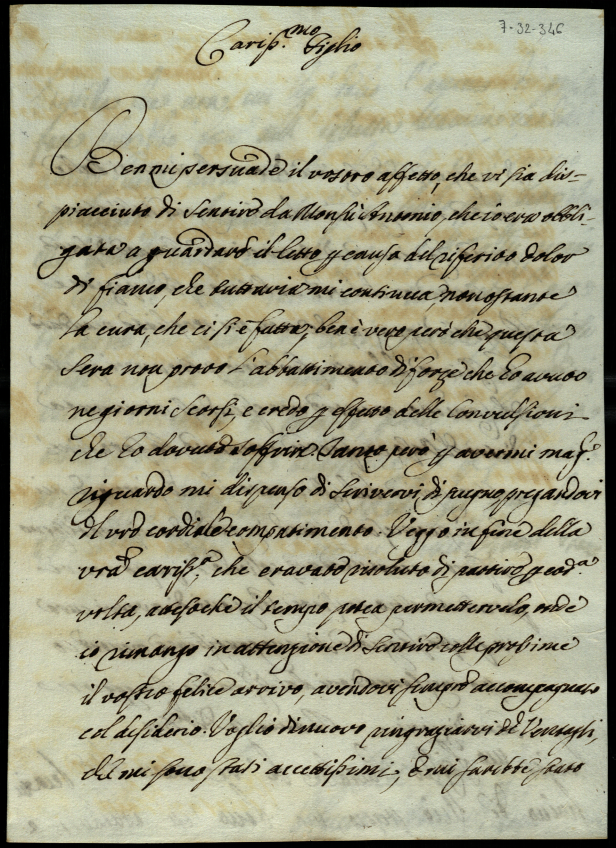 7-32-346
Cariss.mo Figlio
Ben mi persuade il vostro affetto, che vi sia dis-
piacciuto di sentire da Monsù Antonio, che io era obbli-
gata a guardare il letto p causa del riferito dolor
di fianco, che tuttavia mi continua, non ostante
la cura, che ci si è fatta; ben è vero però che questa
sera non provo l'abbattimento di forze che ho avuto
ne giorni scorsi, e credo p effetto delle Convulsioni
che ho dovuto soffrire. Tanto però p avermi mag.r
riguardo mi dispenso di scrivervi di pugno pregandovi
del vrō cordiale compatimento. Veggo in fine della
vrā cariss.a, che eravate risoluto di partire p cod.a
volta, adesochè il tempo potea permettervelo, onde
io rimango in attenzione di sentire colle prossime
il vostro felice arrivo, avendovi sempre accompagnato
col desiderio. Voglio di nuovo ringraziarvi de Ventagli,
che mi sono stati accettissimi, e mi sarebbe stato